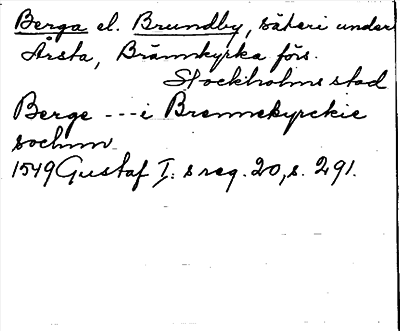 Berga el. Brundby, säteri under
Årsta, Brännkyrka förs.
Stockholms stad
Berge --- i Brennekyrckie
sochnn
1549 Gustaf I:s reg. 20, s. 291.